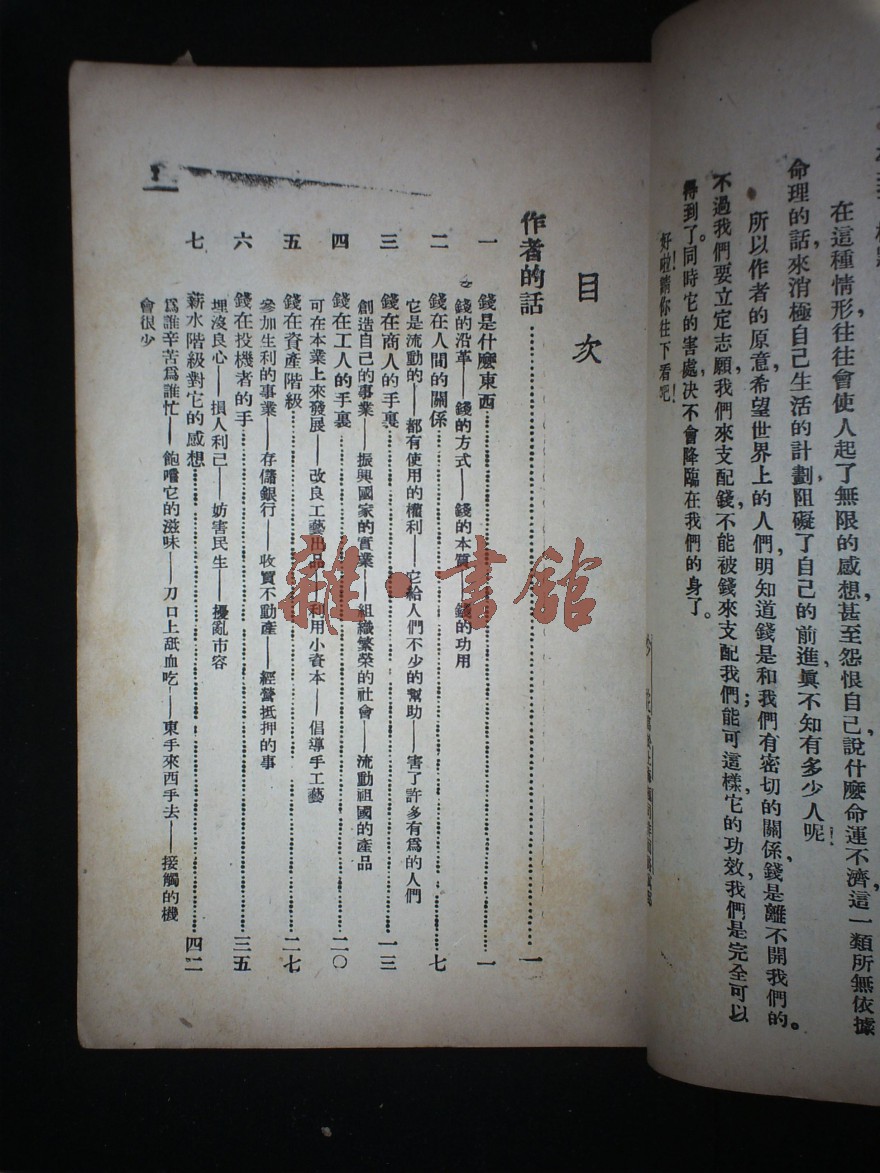 在這種情形往往會使人起了無限的感想，甚至怨恨自己說什麼命運不濟！這一類所無依據，
命理的話，來消極自己生活的計劃，阻礙了自己的前進，眞不知有多少人呢！
所以作者的原意，希望世界上的人們，明知道錢是和我們有密切的關係，錢是離不開我們的。
不過我們要立定志願，我們來支配錢，不能被錢來支配我們；能可這樣，它的功效，我們是完全可以
得到了。同時它的害處，决不會降臨在我們的身了。
好啦！請你往下看吧！
目次
作者的話 一
一 錢是什麼東西 一
錢的沿革——錢的方式——錢的本質——錢的功用
二 錢在人間的關係 七
它是流動的——都有使用的權利——它給人們不少的幫助——害了許多有爲的人們
三 錢在商人的手裏 一三
創造自己的事業——振興國家的實業——組織繁榮的社會——流動祖國的產品
四 錢在工人的手裏 二〇
可在本業上來發展——改良工藝出品——利用小資本——倡導手工藝
五 錢在資產階級 二七
參加生利的事業——存儲銀行——收買不動產——經營抵押的事
六 錢在投機者的手 三五
埋沒良心——損人利己——妨害民生——擾亂市容
七 薪水階級對它的感想 四二
爲誰辛苦爲誰忙——飽嚐它的滋味——刀口上舐血吃——東手來西手去——接觸的機
會很少
雜·書館